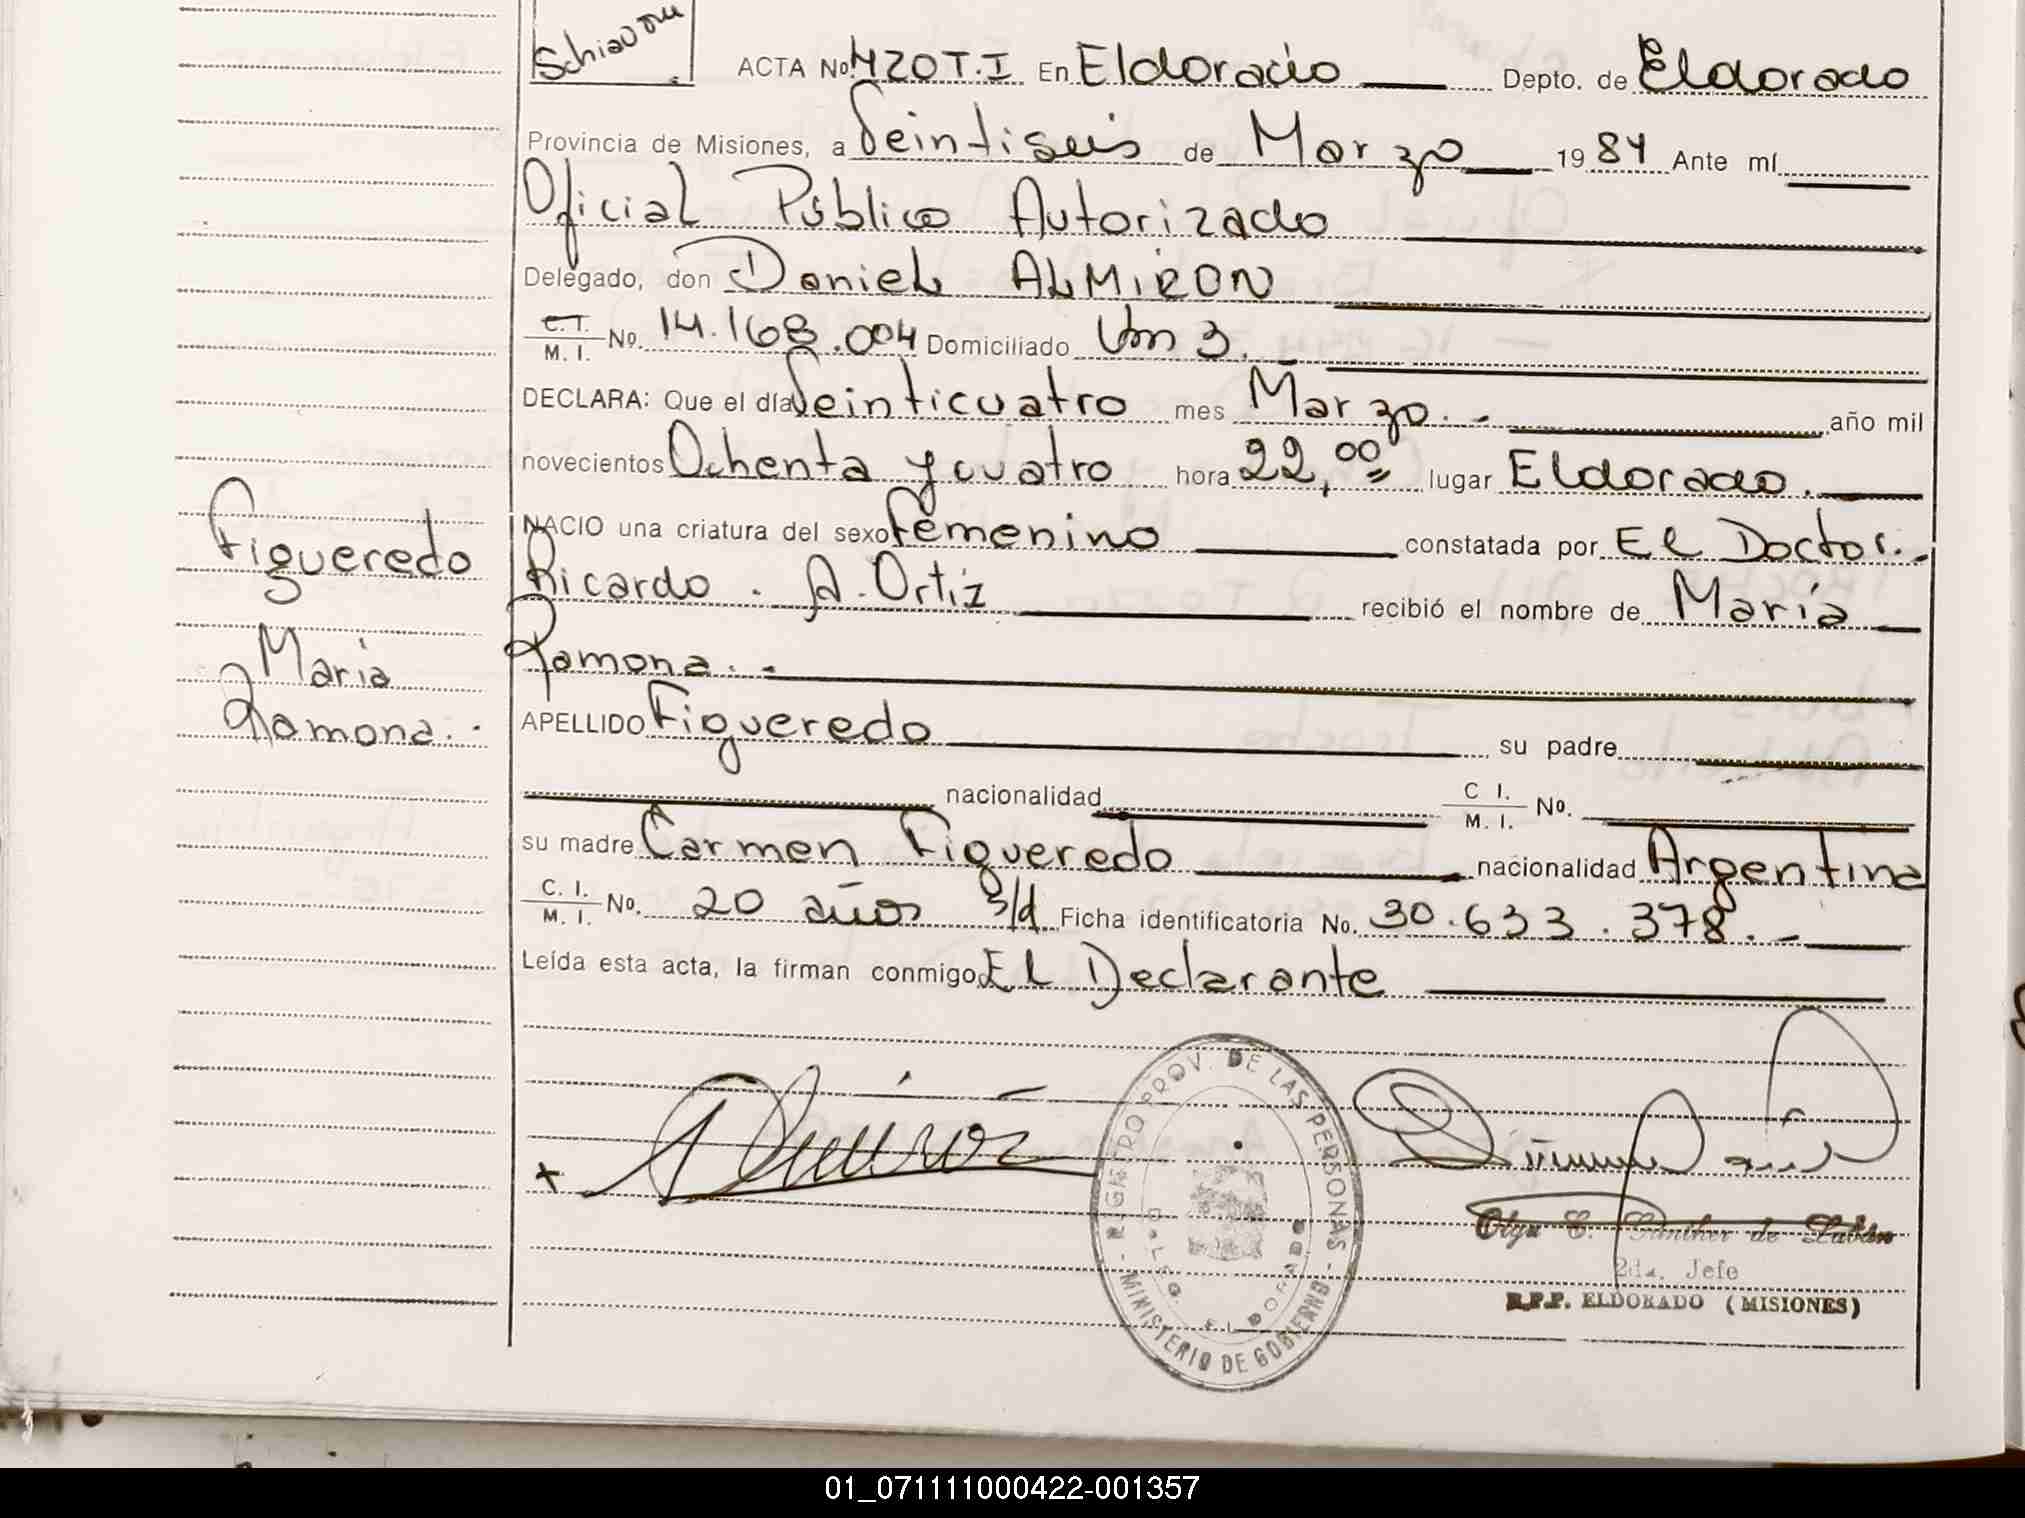 Schiavoni
ACTA No. 420 T.I En Eldorado Depto. de Eldorado
Provincia de Misiones, a Veintiseis de Marzo 1984 Ante mí
Oficial Público Autorizado
Delegado, don Daniel ALMIRON
C.I.
M. I. No. 14.168.004 Domiciliado Km 3.
DECLARA: Que el día Veinticuatro mes Marzo.- año mil
novecientos Ochenta y cuatro hora 22,00 lugar Eldorado.
NACIO una criatura del sexo Femenino constatada por El Doctor.-
Ricardo. A. Ortiz recibió el nombre de María
Ramona.-
APELLIDO Figueredo su padre
nacionalidad C I.
M. I. No.
su madre Carmen Figueredo nacionalidad Argentina
C. I.
M. I. No. 20 años s/d Ficha identificatoria No. 30.633.378.-
Leída esta acta, la firman conmigo, El Declarante
Figueredo
María
Ramona.-
REGISTRO PROV. DE LAS PERSONAS - MINISTERIO DE GOBIERNO -
DELEG. ELDORADO
Olga E. Günther de
2da. Jefe
R.P.P. ELDORADO (MISIONES)
01_071111000422-001357